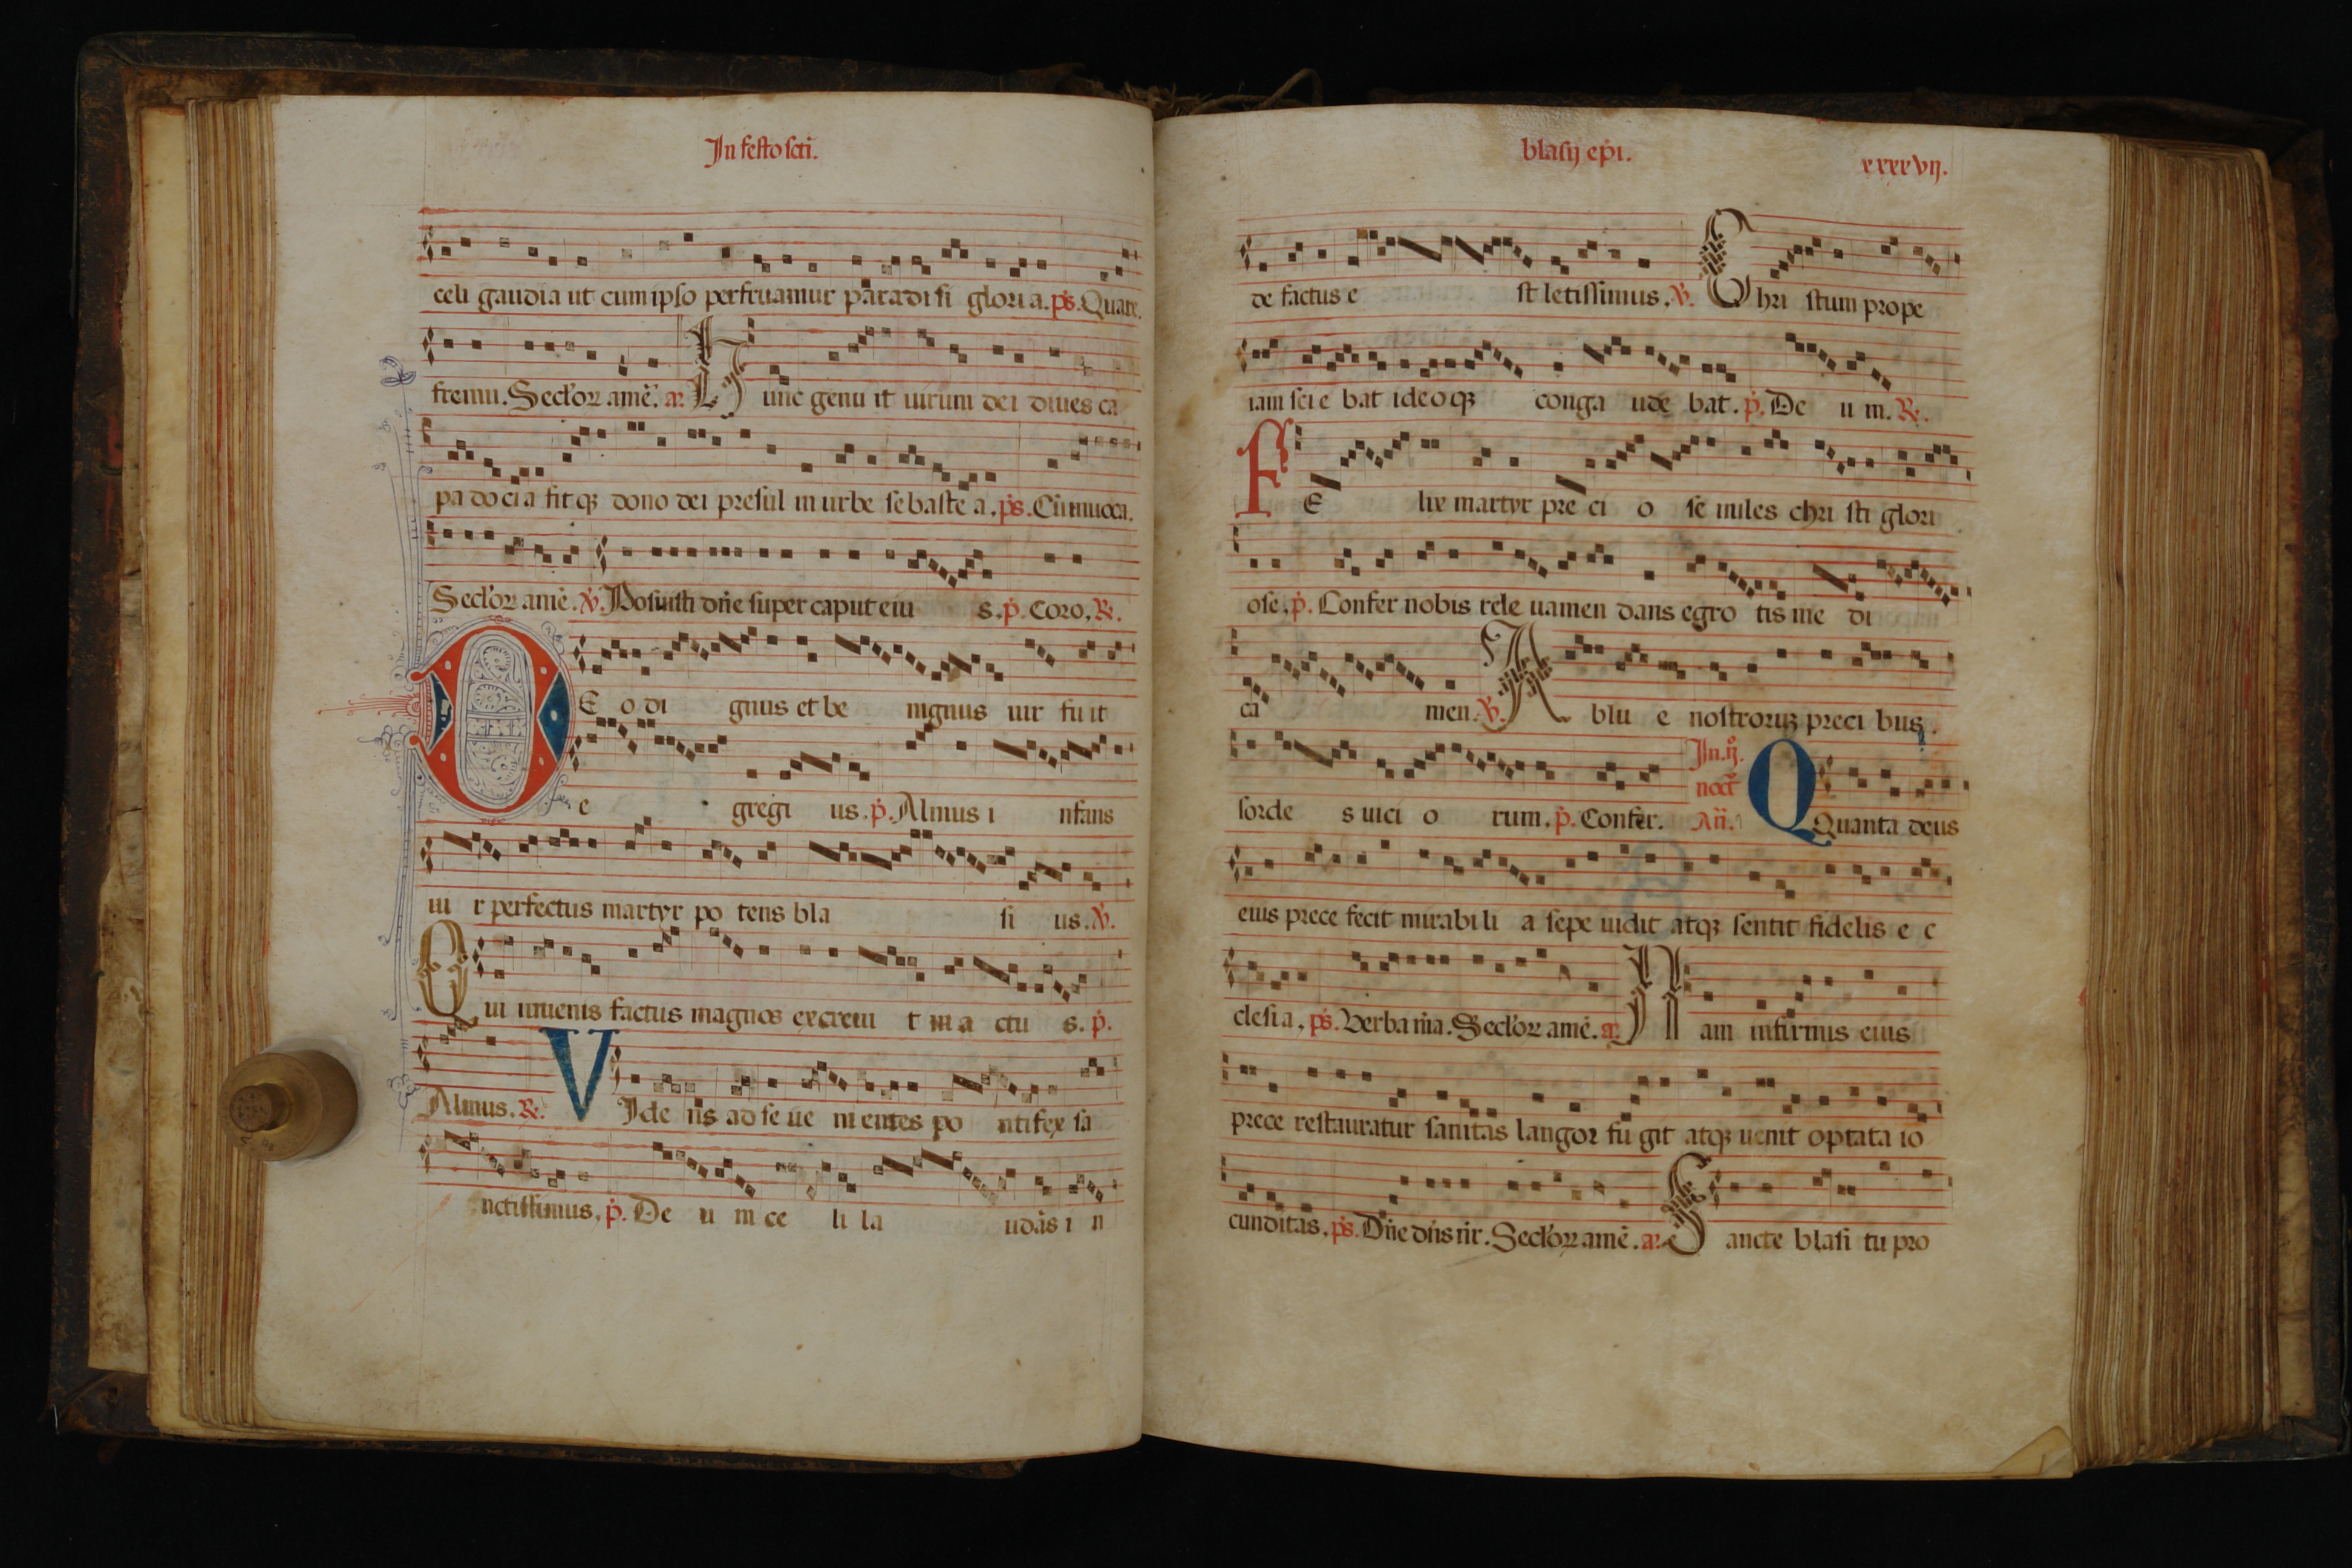 In festo scti.
celi gaudia ut cum ipso perfruamur paradi si glori a. ps. Quare
fremu. Seclor amē. a. Hunc genu it uirum dei diues ca
pa docia fit q; dono dei presul in urbe se baste a. ps. Cū inuoca.
Seclor amē. V. Posuisti dn̄e super caput eiu s. p. Coro. R.
DE o di gnus et be nignus uir fu it
e gregi us. p. Almus i nfans
ui r perfectus martyr po tens bla si us. V.
Qui iuuenis factus magnos excreui t in a ctu s. p.
Almus. R. VIde ns ad se ue ni entes po ntifex sa
nctissimus. p. De u m ce li la udās i n
blasij ep̄i. xxxxvij.
de factus e st letissimus. V. Chri stum prope
iam sci e bat ideo q; conga ude bat. p. De u m. R.
FE lix martyr pre ci o se miles chri sti glori
ose. p. Confer nobis rele uamen dans egro tis me di
ca men. V. Ablu e nostroru; preci bus
sorde s uici o rum. p. Confer. In. ij. noct. Añ. QQuanta deus
eius prece fecit mirabi li a sepe uidit atq; sentit fidelis e c
clesi a. ps. Verba m̄a. Seclor amē. a. Nam infirmus eius
prece restauratur sanitas langor fu git atq; uenit optata io
cunditas. ps. Dn̄e dn̄s nr̄. Seclor amē. a. Sancte blasi tu pro